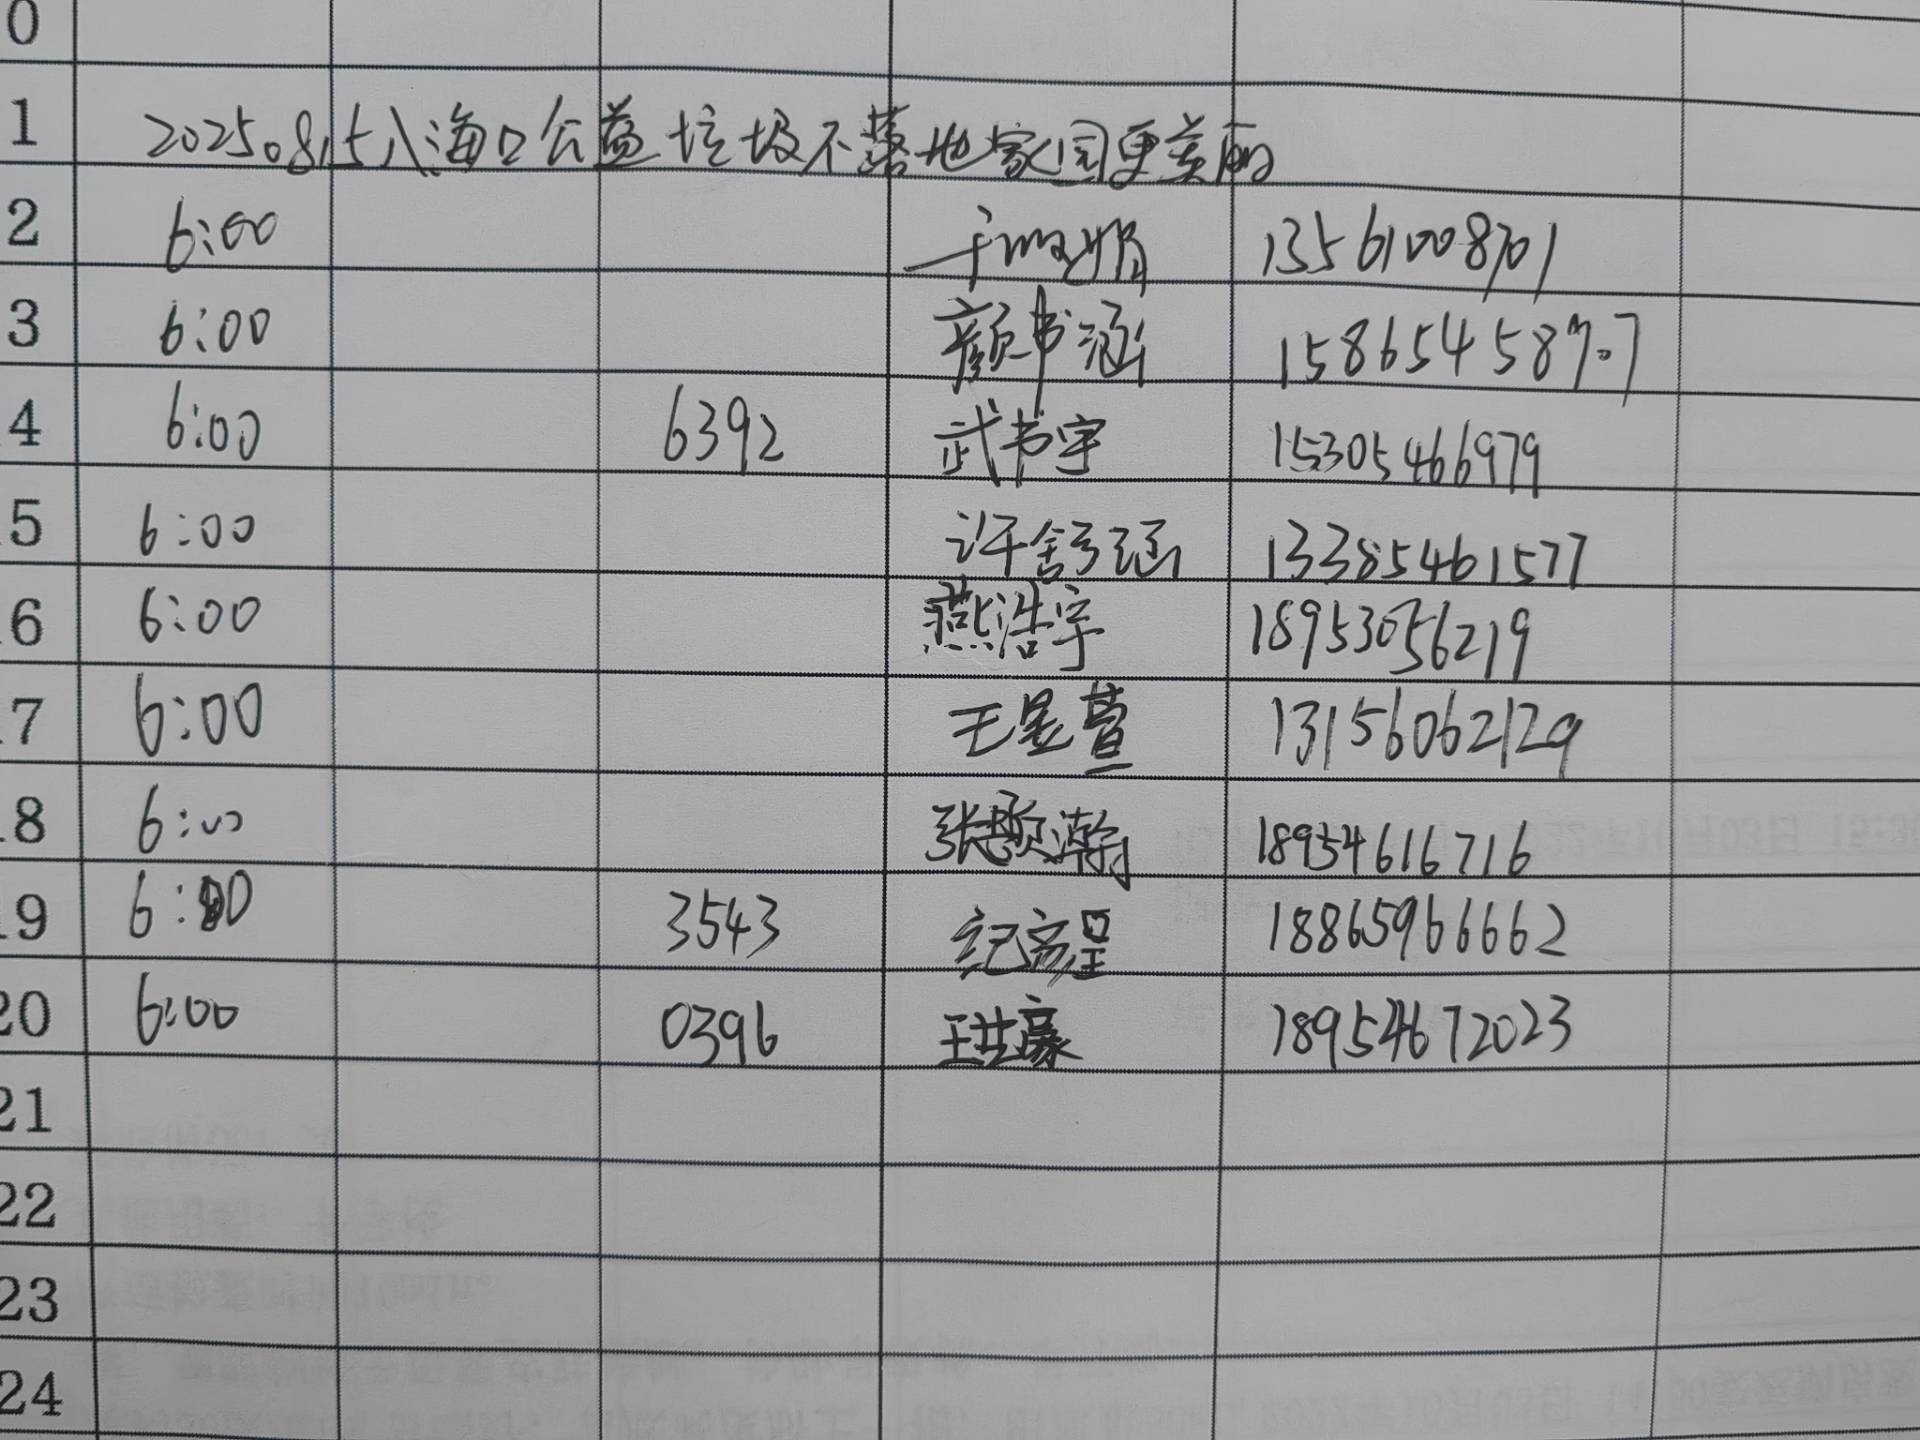 0
1 2025.8.15 八海口公益垃圾不落地家园更美丽
2 6:00 13561008701
3 6:00 颜书涵 15865458707
4 6:00 6392 武书宇 15305466979
5 6:00 许舒涵 13385461577
6 6:00 燕浩宇 18953056219
7 6:00 王昱萱 13156062129
8 6:00 18954616716
9 6:00 3543 18865966662
20 6:00 0396 18954672023
21
22
23
24